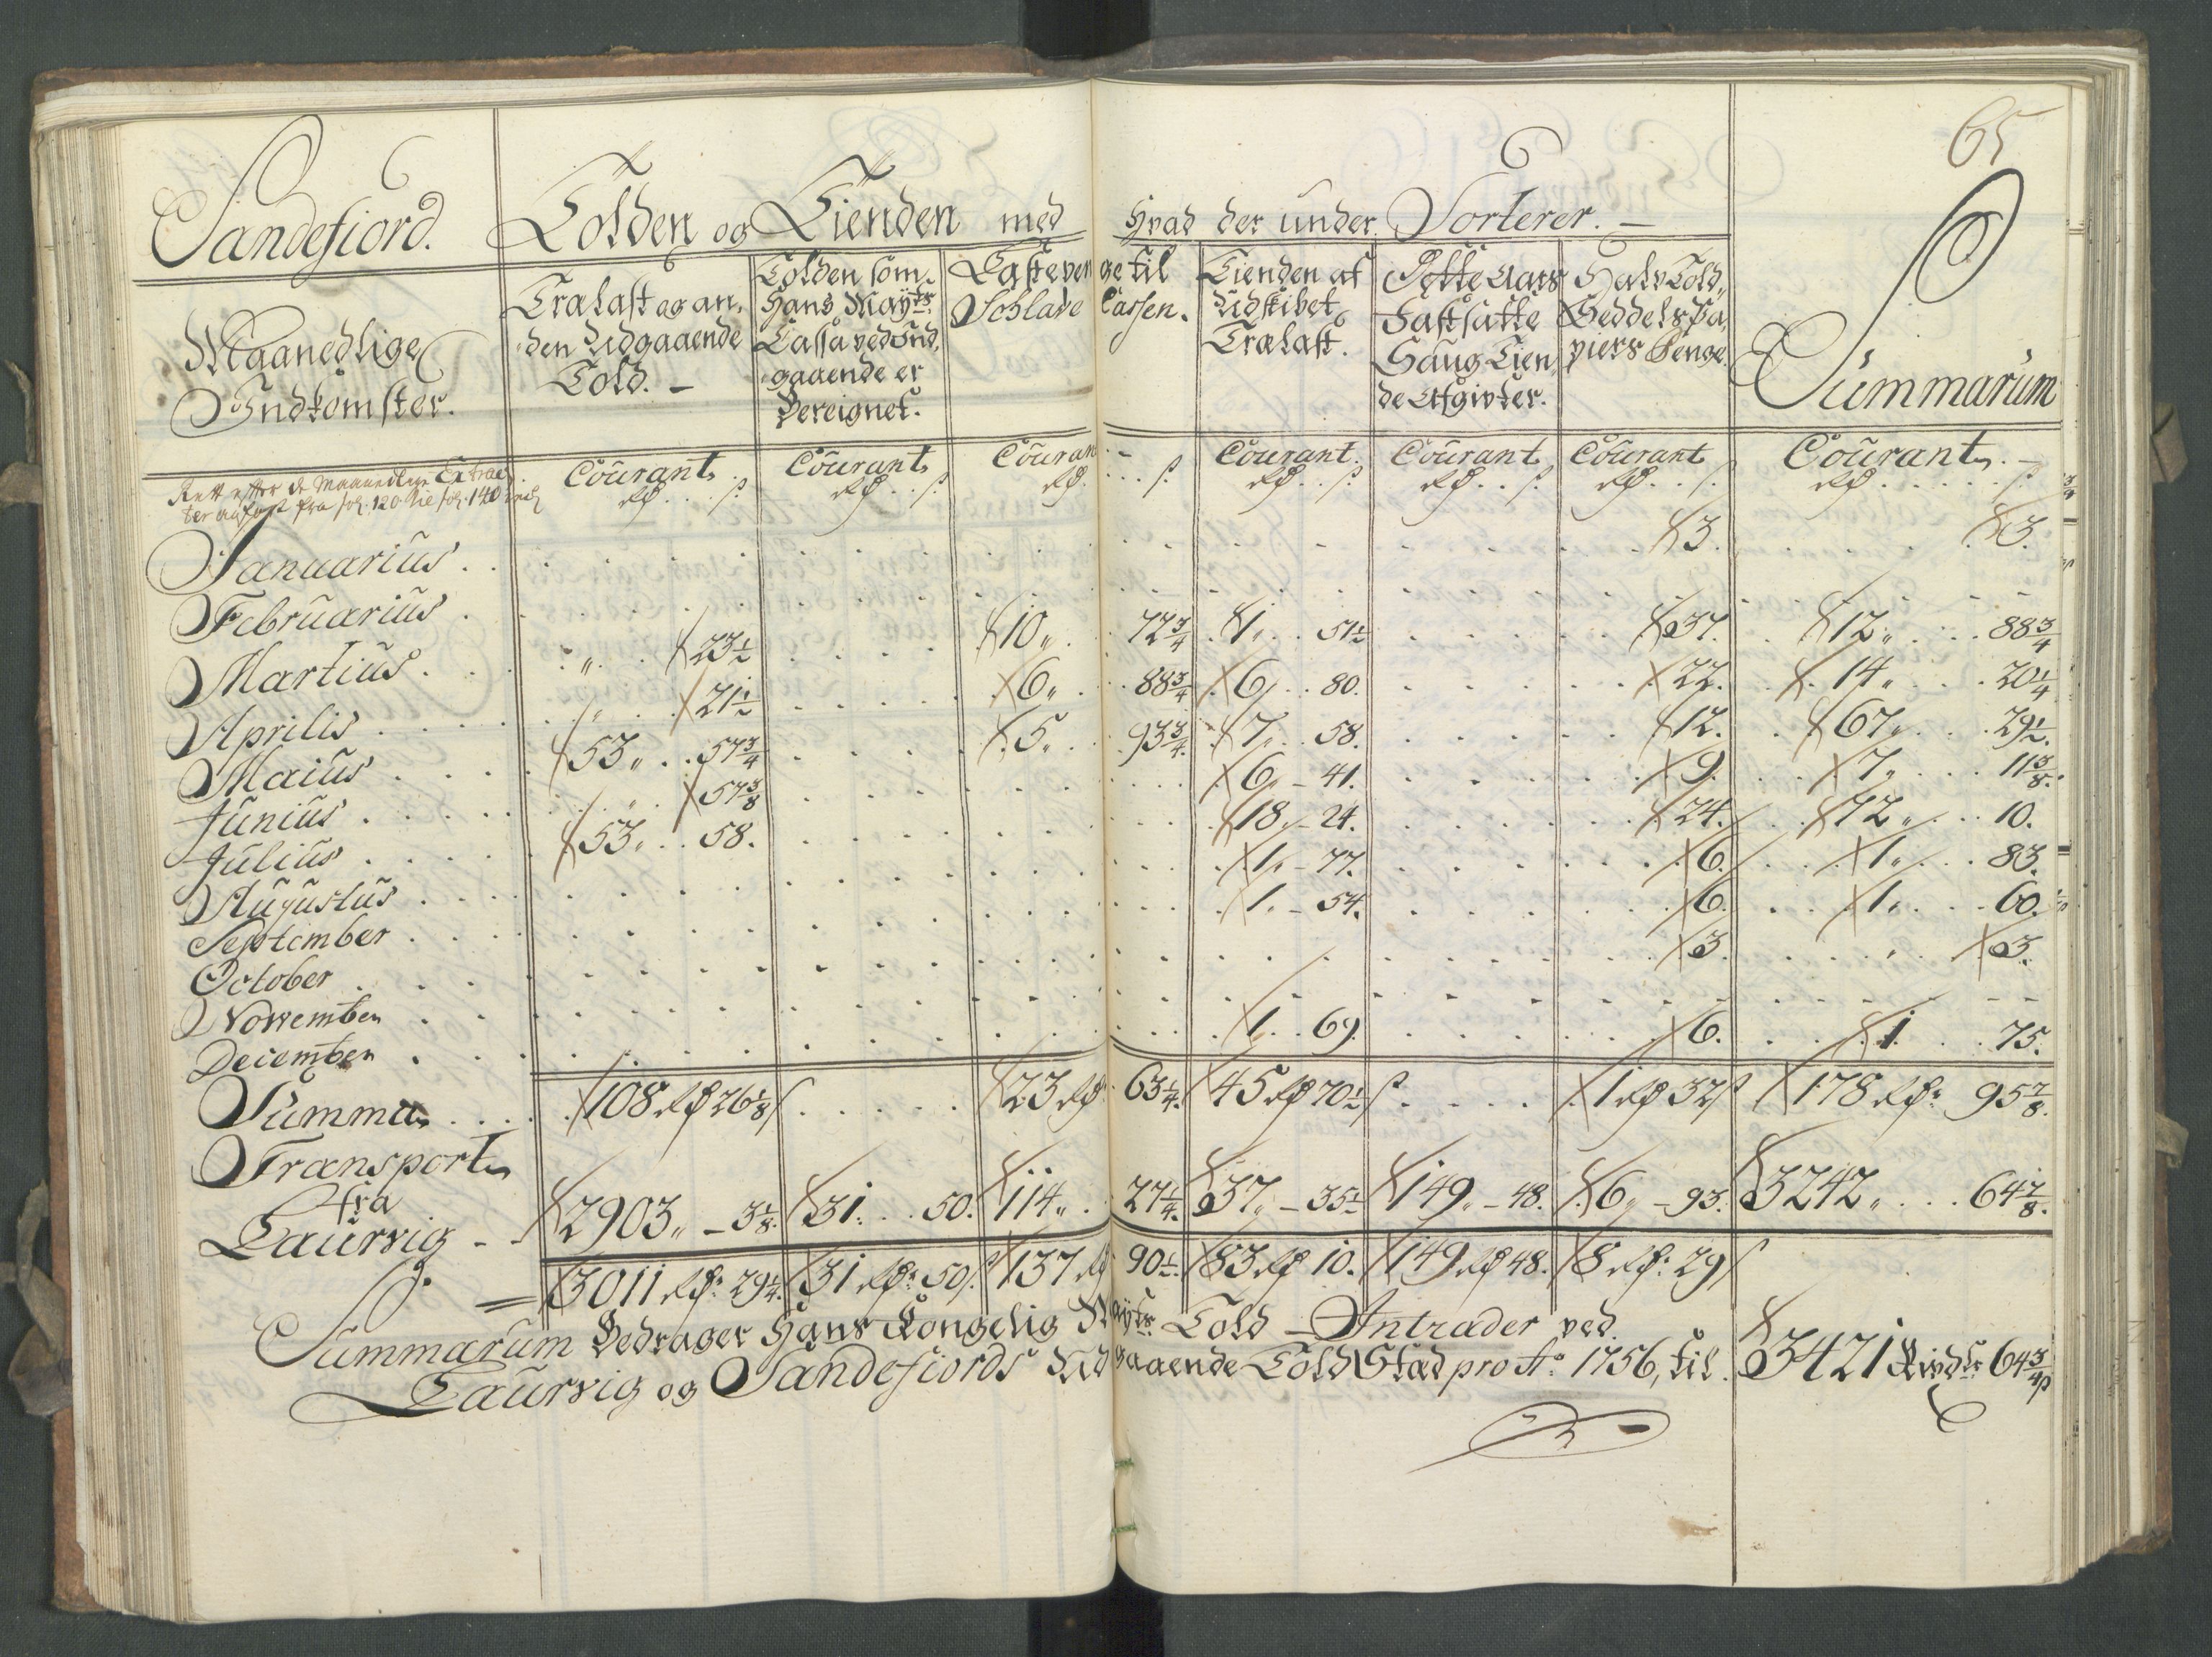 65
Sandefiord. Tolden og Tienden med Hvad der under Sorterer. —
Maanedlige Indkomster.
Trælast og anden Udgaaende Told. —
Tolden som Hans Mayts Cassa ved Indgaaende er Bereignet.
Lastepenge til Schlave Cassen.
Tienden af Udskibet Trælast.
Aars Fastsatte Saug Tiende Afgivter.
Halv Told Seddels Papiirs Penge.
Summarum
Rett efter de Maanedlige Extrac
fra fol. 120 til fol. 140
Courant Courant Courant Courant Courant Courant Courant. —
Januarius . . 3. 3.
Februarius .
Martius . „ 23½ 10„ 72¾ 1„ 51½ 37. 12„ 88¾
Aprilis . „ 21½ 6„ 88¾ 6„ 80. 22. 14„ 20¼
Maius . 53„ 57¾ 5„ 93¾ 7„ 58. 12. 67„ 29½.
Junius . „ 57⅜ 6„ – 41. 9. 7„ 11⅜.
Julius . 53„ 58. 18„ – 24. 24. 72„ 10.
Augustus . 1„ – 77. 6. 1„ 83.
September . 1„ – 54. 6. 1„ 60.
October . 3. 3.
Novvember .
December . 1 . . 69. 6. 1 75.
Summa . . 108 rd 26⅛ 23 rd 63¼. 45 rd 70½ 1 rd 32 178 rd: 95⅞.
Transport
fra
Laurvig - - 2903„ – 3⅛. 31. . . 50. 114„ 27¼. 37„ – 35½ 149„ – 48. 6„ – 93. 3242„ . . . 64⅞.
3011 rd: 29¼. 31 rd: 50 137 rd 90½. 83 rd 10. 149 rd 48. 8 rd: 29
Summarum Bedrager Hans Kongelig Mayts Told – Intrader ved
Laurvig og Sandefiords Udgaaende Told Stad pro Ao 1756, til. 3421 Rixdr 64¾